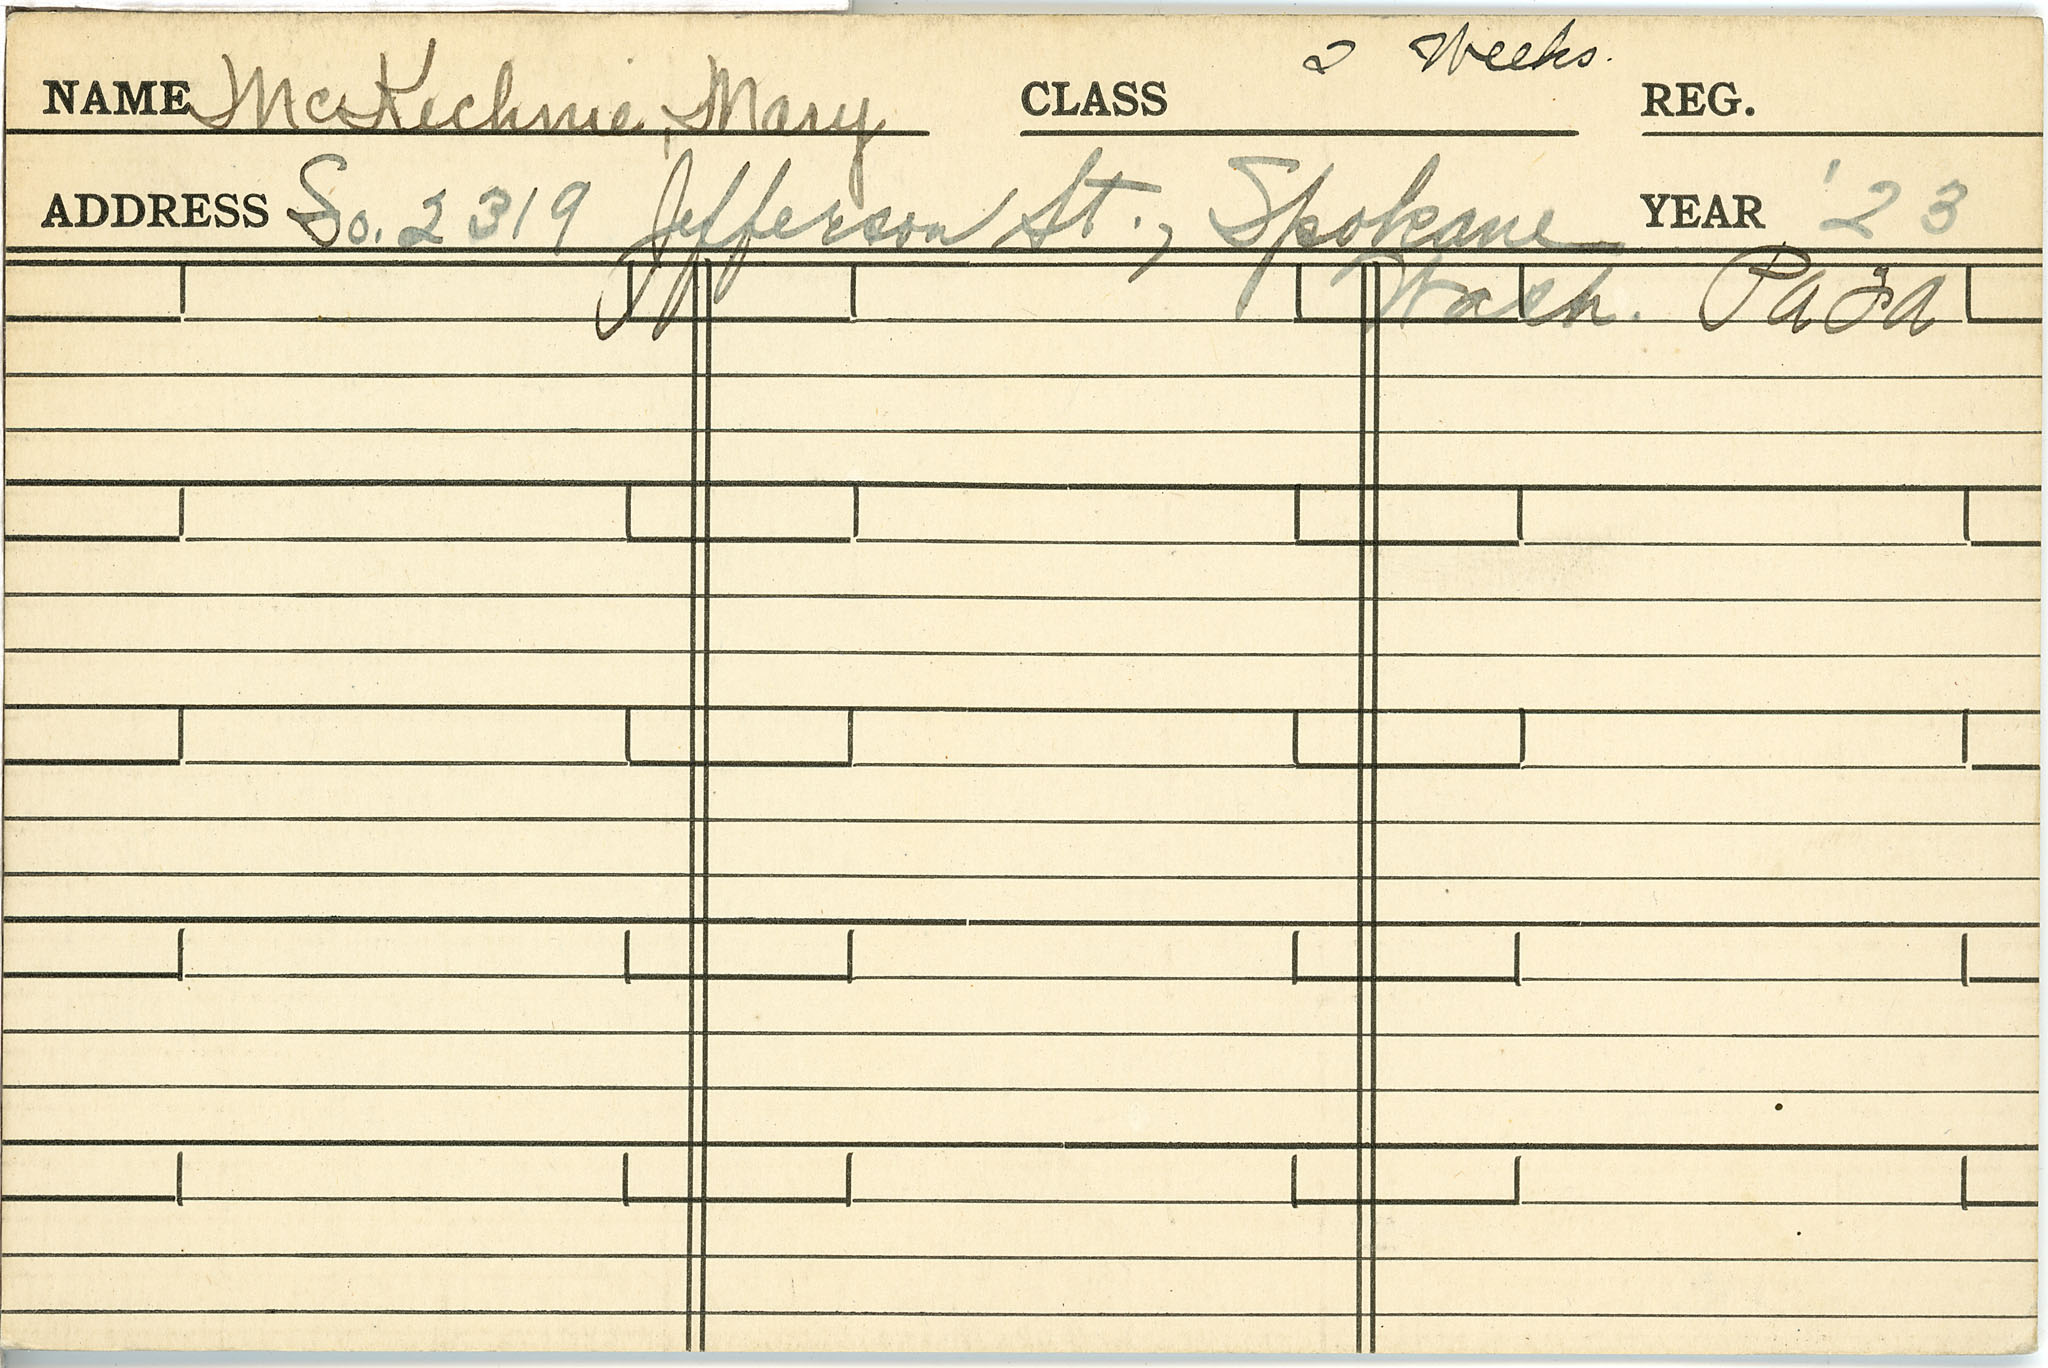 NAME McKechnie, Mary CLASS 2 Weeks. REG.
ADDRESS So. 2319 Jefferson St., Spokane YEAR '23
Wash.